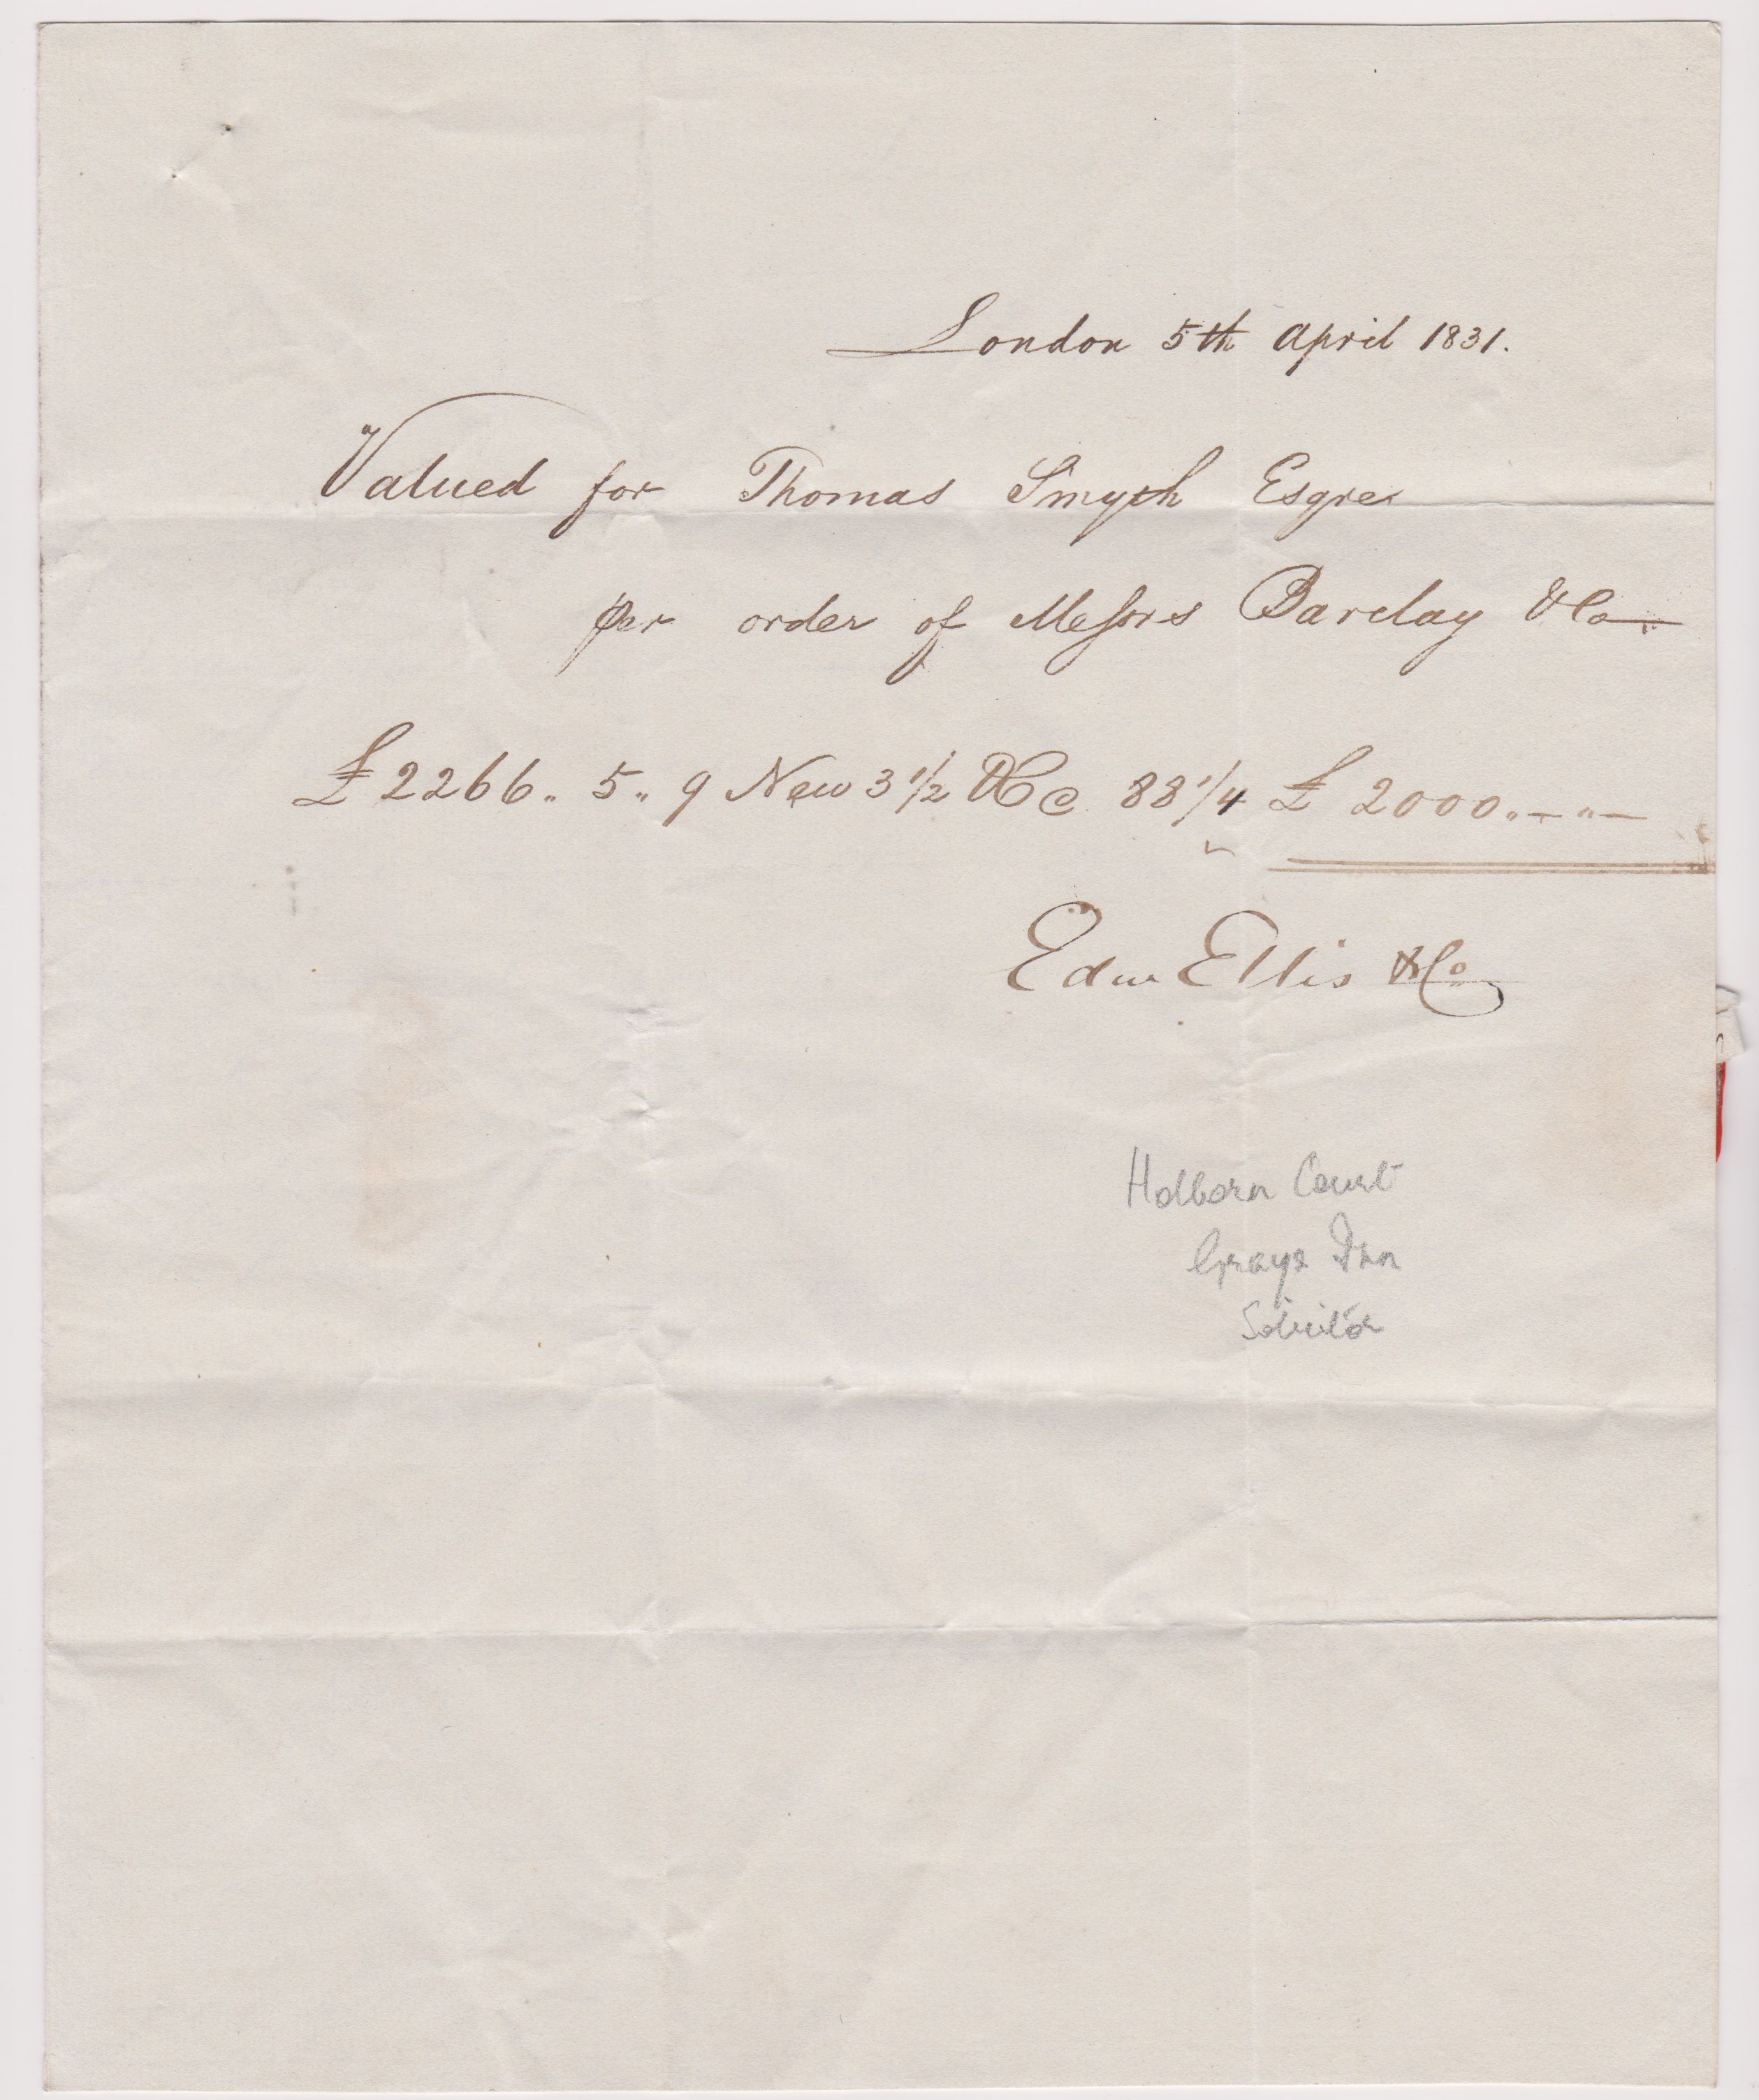 London 5th April 1831.
Valued for Thomas Smyth Esqre
per order of Messrs Barclay & Co
£2266.. 5.. 9 New 3 1/2 P Ct @ 88 1/4 £ 2000.. - .. -
Edw Ellis & Co
Holborn Court
Grays Inn
Solicitor